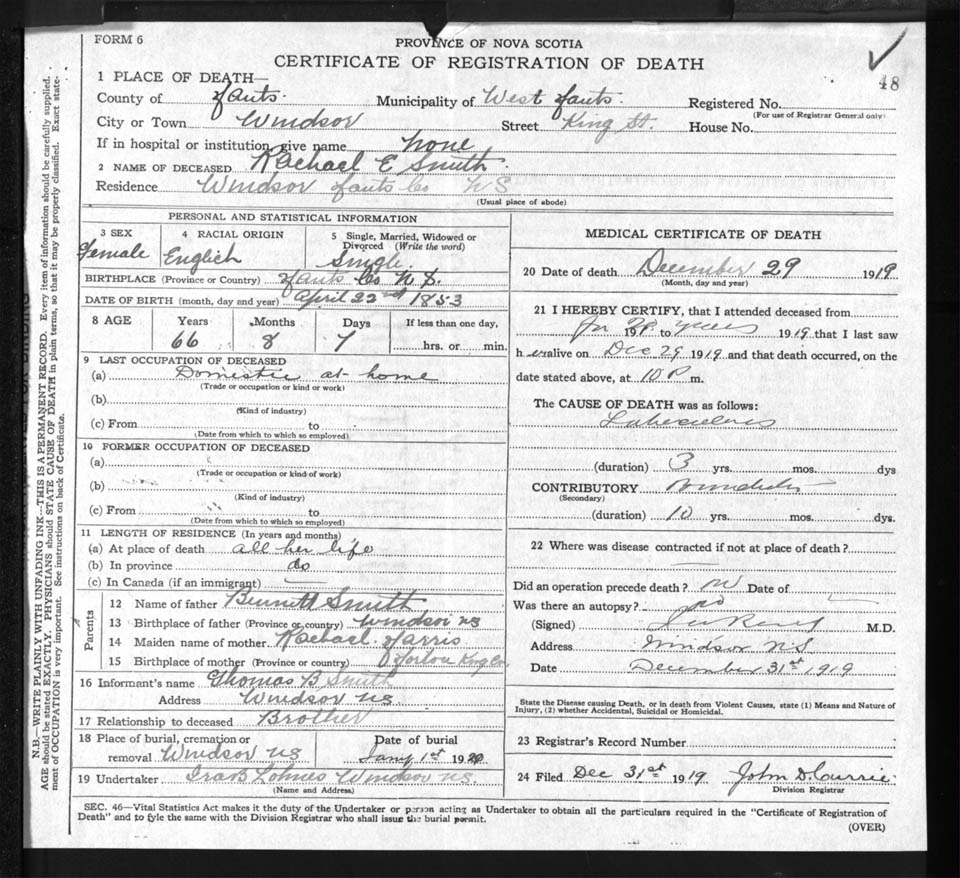 FORM 6
PROVINCE OF NOVA SCOTIA
CERTIFICATE OF REGISTRATION OF DEATH
48
1 PLACE OF DEATH—
County of Hants. Municipality of West Hants. Registered No.
(For use of Registrar General only)
City or Town Windsor Street King St. House No.
If in hospital or institution, give name none
2 NAME OF DECEASED Rachael E Smith.
Residence Windsor Hants Co N S
(Usual place of abode)
PERSONAL AND STATISTICAL INFORMATION
3 SEX 4 RACIAL ORIGIN 5 Single, Married, Widowed or
Divorced (Write the word)
Female English Single.
BIRTHPLACE (Province or Country) Hants Co N S.
DATE OF BIRTH (month, day and year) April 22nd 1853
8 AGE Years Months Days If less than one day,
66 8 7 hrs. or min.
9 LAST OCCUPATION OF DECEASED
(a) Domestic at home
(Trade or occupation or kind or work)
(b)
(Kind of industry)
(c) From to
(Date from which to which so employed)
10 FORMER OCCUPATION OF DECEASED
(a)
(Trade or occupation or kind of work)
(b)
(Kind of industry)
(c) From to
(Date from which to which so employed)
11 LENGTH OF RESIDENCE (In years and months)
(a) At place of death all her life
(b) In province do
(c) In Canada (if an immigrant)
Parents
12 Name of father Bennett Smith
13 Birthplace of father (Province or country) Windsor NS
14 Maiden name of mother Rachael Harris
15 Birthplace of mother (Province or country) Horton Kings Co.
16 Informant's name Thomas B Smith
Address Windsor NS
17 Relationship to deceased Brother
18 Place of burial, cremation or Date of burial
removal Windsor NS Jany 1st 1920
19 Undertaker Windsor NS
(Name and Address)
MEDICAL CERTIFICATE OF DEATH
20 Date of death December 29 1919
(Month, day and year)
21 I HEREBY CERTIFY, that I attended deceased from
for 191 to years 1919 that I last saw
her alive on Dec 29 1919 and that death occurred, on the
date stated above, at 10 P m.
The CAUSE OF DEATH was as follows:
Tuberculosis
(duration) 3 yrs. mos. dys
CONTRIBUTORY Bronchitis
(Secondary)
(duration) 10 yrs. mos. dys.
22 Where was disease contracted if not at place of death?
Did an operation precede death? no Date of
Was there an autopsy? no
(Signed) M.D.
Address Windsor NS
Date December 31st 1919
State the Disease causing Death, or in death from Violent Causes, state (1) Means and Nature of
Injury, (2) whether Accidental, Suicidal or Homicidal.
23 Registrar's Record Number
24 Filed Dec 31st 1919 John D. Currie
Division Registrar
SEC. 46—Vital Statistics Act makes it the duty of the Undertaker or person acting as Undertaker to obtain all the particulars required in the "Certificate of Registration of
Death" and to fyle the same with the Division Registrar who shall issue the burial permit.
(OVER)
N.B.—WRITE PLAINLY WITH UNFADING INK—THIS IS A PERMANENT RECORD. Every item of information should be carefully supplied.
AGE should be stated EXACTLY. PHYSICIANS should STATE CAUSE OF DEATH in plain terms, so that it may be properly classified. Exact state-
ment of OCCUPATION is very important. See instructions on back of Certificate.